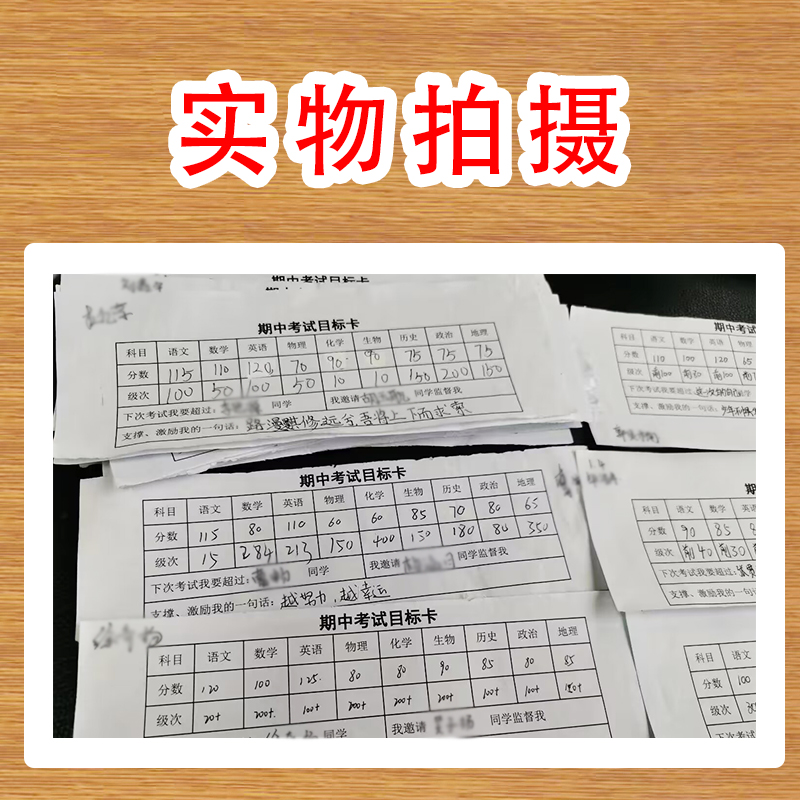 实物拍摄
期中考试目标卡
期中考试目标卡
科目 语文 数学 英语 物理 化学 生物 历史 政治 地理
分数 115 110 120 70 90 90 75 75 75
级次 100 50 100 50 10 10 150 200 150
下次考试我要超过: 同学 我邀请 同学监督我
支撑、激励我的一句话: 路漫漫其修远兮,吾将上下而求索
期中考试目标卡
科目 语文 数学 英语 物理 化学 生物 历史 政治 地理
分数 115 80 110 60 60 85 70 80 65
级次 15 284 213 150 400 150 180 80 350
下次考试我要超过: 同学 我邀请 同学监督我
支撑、激励我的一句话: 越努力,越幸运
期中考试目标卡
科目 语文 数学 英语 物理 化学 生物 历史 政治 地理
分数 120 100 125 80 80 90 85 80 85
级次 20+ 200+ 100+ 200+ 200+ 200+ 100+ 100+
同学 我邀请 同学监督我
期中考试
科目 语文 数学 英语 物
分数 110 100 120 65
级次 前100 前100
下次考试我要超过:
支撑、激励我的一句话:
期
科目 语文 数学 英
分数 90 85
级次 前40 前30
下次考试我要超过:
支撑、激励我的一句话:
科目 语文
分数 100
级次
下次考